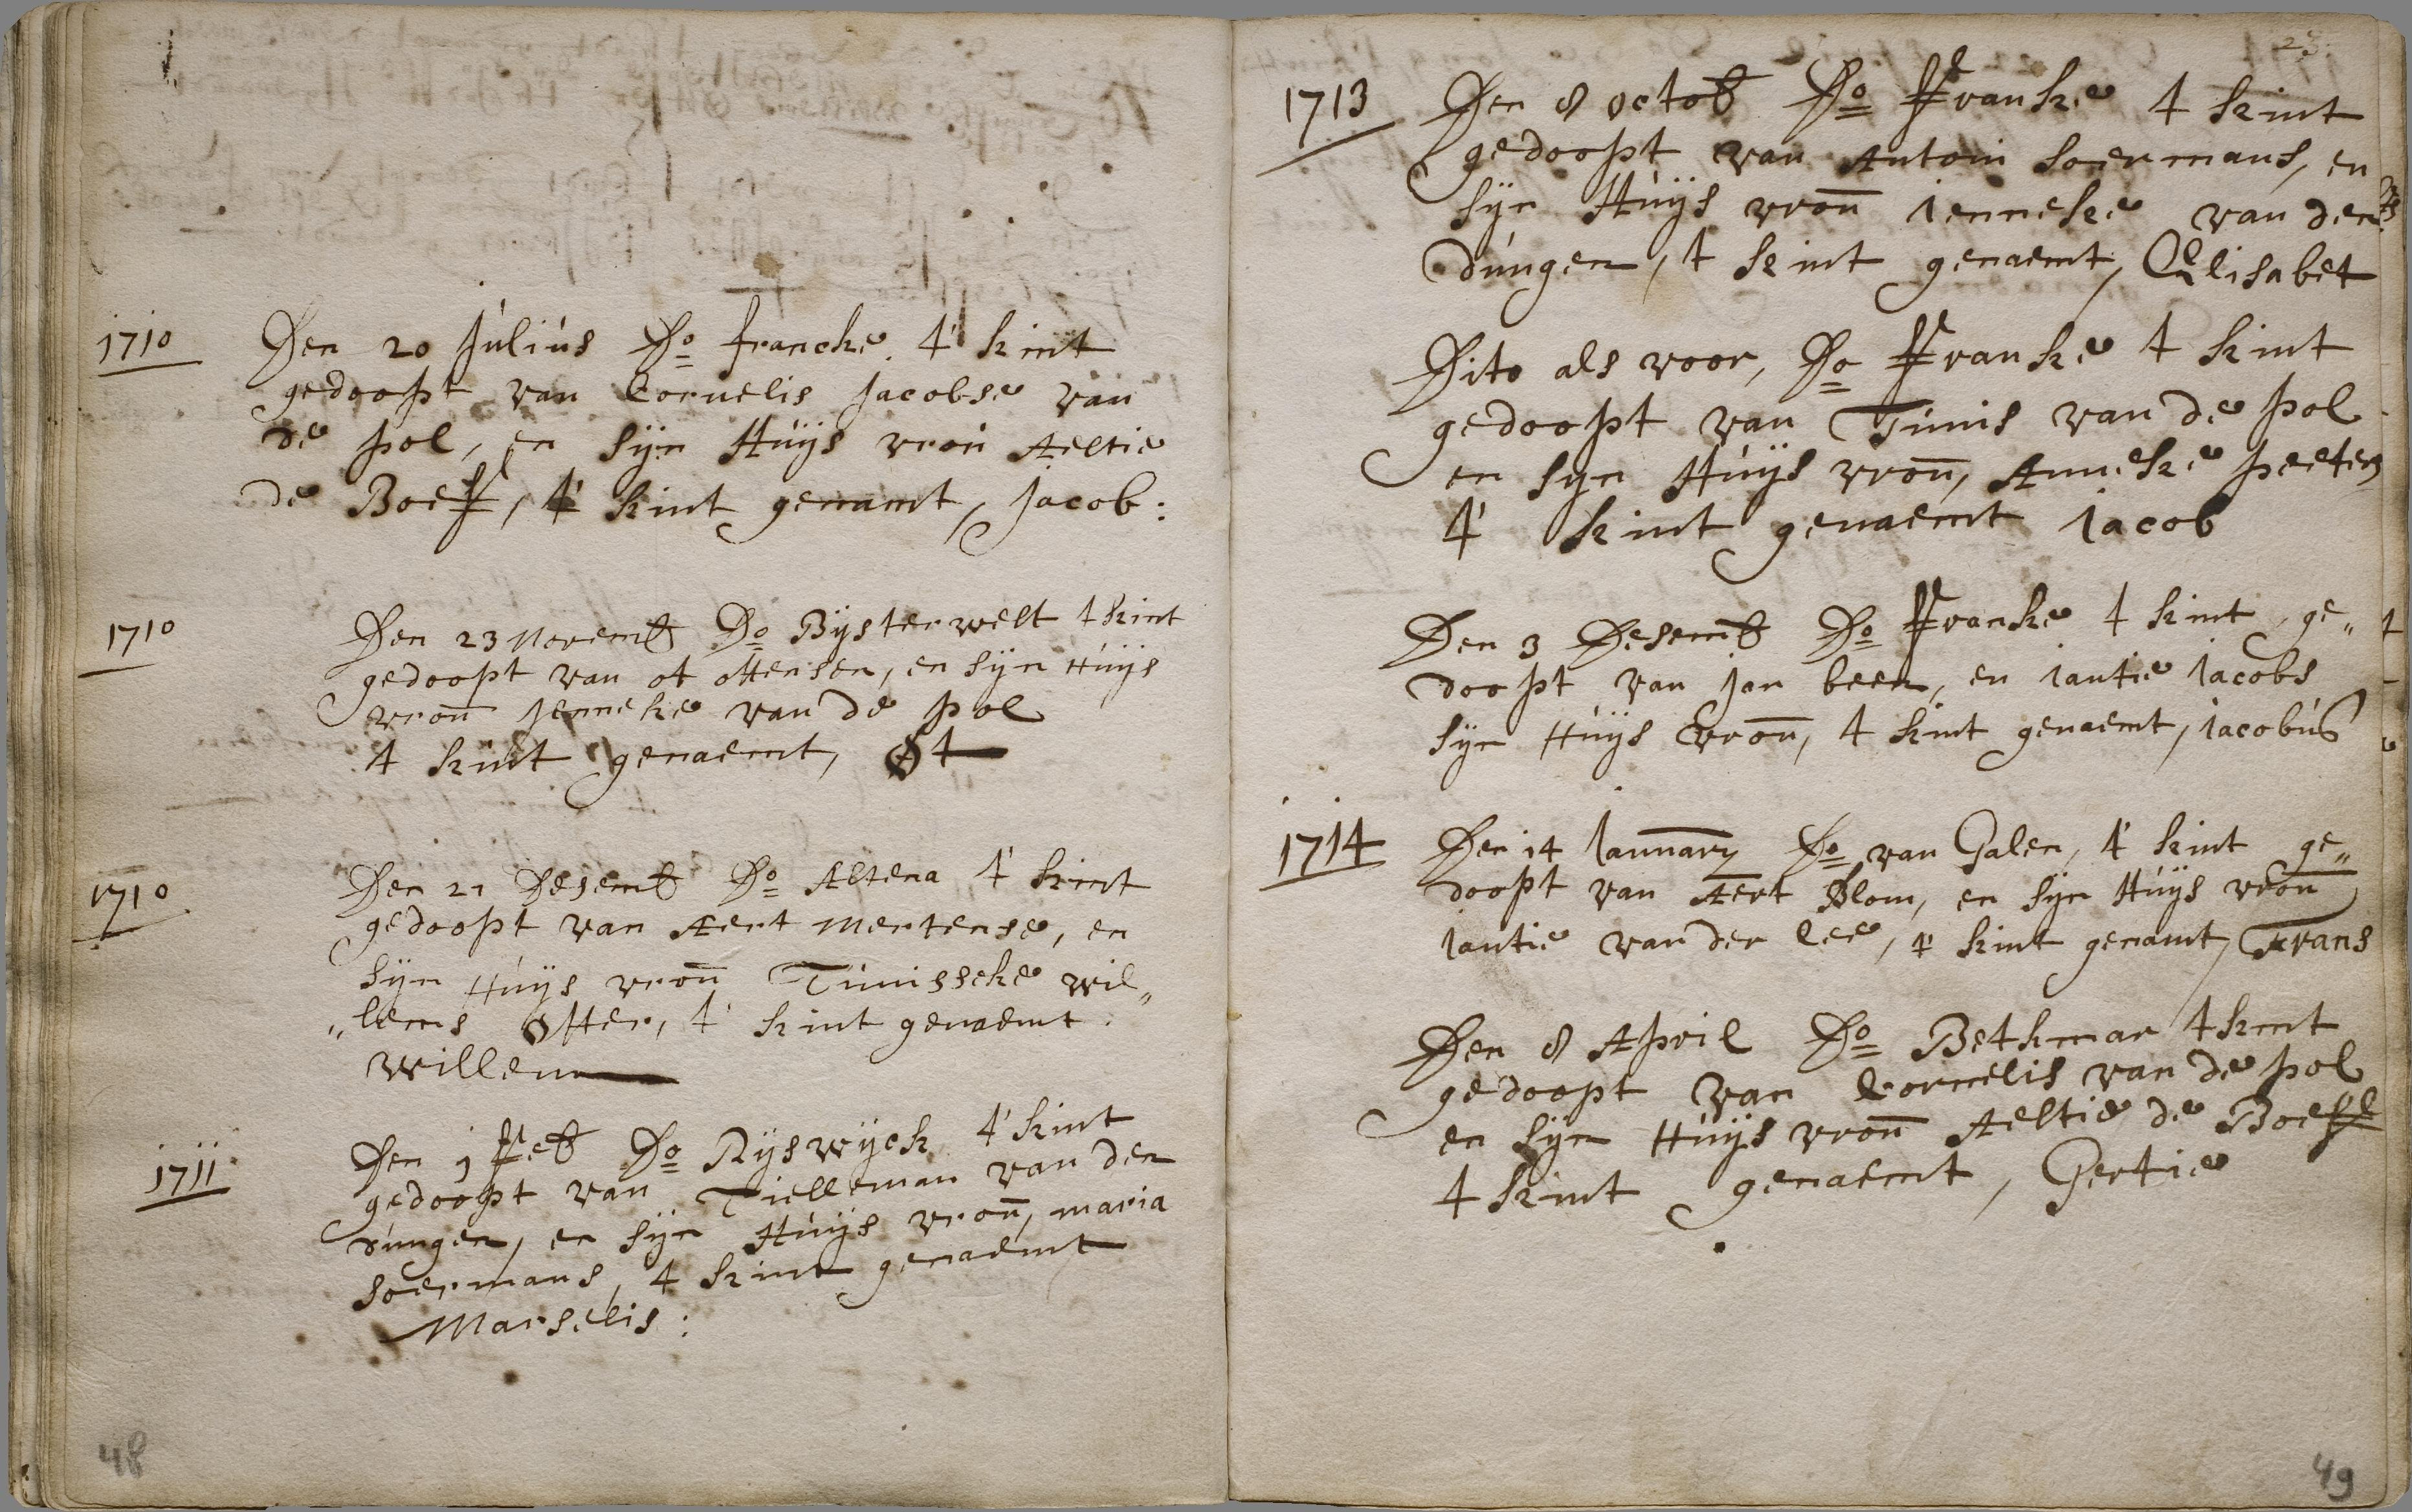 1710 Den 20 Julius Do francke t' kint
gedoopt van Cornelis Jacobse van
de pol, en sijn Huijs vrou Aeltie
de Boeff, t' kint genamt, Jacob:
1710 Den 23 Novemb Do Bijsterwelt t kint
gedoopt van ot ottensen, en sijn Huijs
vrou Jenneke van de pol
t kint genaemt, Ot
1710 Den 21 Desemb Do Altena t' kint
gedoopt van Aert Mertense, en
sijn Huijs vrou Tunisseke wil„
„lems Otter, t' kint genaemt:
Willem
1711 Den 1 Feb Do Rijswijck t' kint
gedoopt van Tielleman van den
dungen, en sijn Huijs vrou, maria
soermans, t kint genaemt
Marselis:
48
23
1713 Den 8 octob Do Franke t kint
gedoopt van Antoni soermans, en
sijn Huijs vrou Jenneke van den
dungen, t kint genaemt, Elisabet
Dito als voor, Do Franke t kint
gedoopt van Tunis van de pol
en sijn Huijs vrou, Anneke peeters
t' kint genaemt Jacob
Den 3 Desemb Do Franke t kint ge„
doopt van Jan been, en Jantie Jacobs
sijn Huijs vrou, t kint genaemt, Jacobus
1714 Den 14 Jannary Do van Galen, t' kint ge„
doopt van Aert Blom, en sijn Huijs vrou
Jantie van der lee, t' kint genamt, Frans
Den 8 April Do Bethmar t kint
gedoopt van Cornelis van de pol
en sijn Huijs vrou Aeltie de Boeff
t kint genaemt, Gertie
49